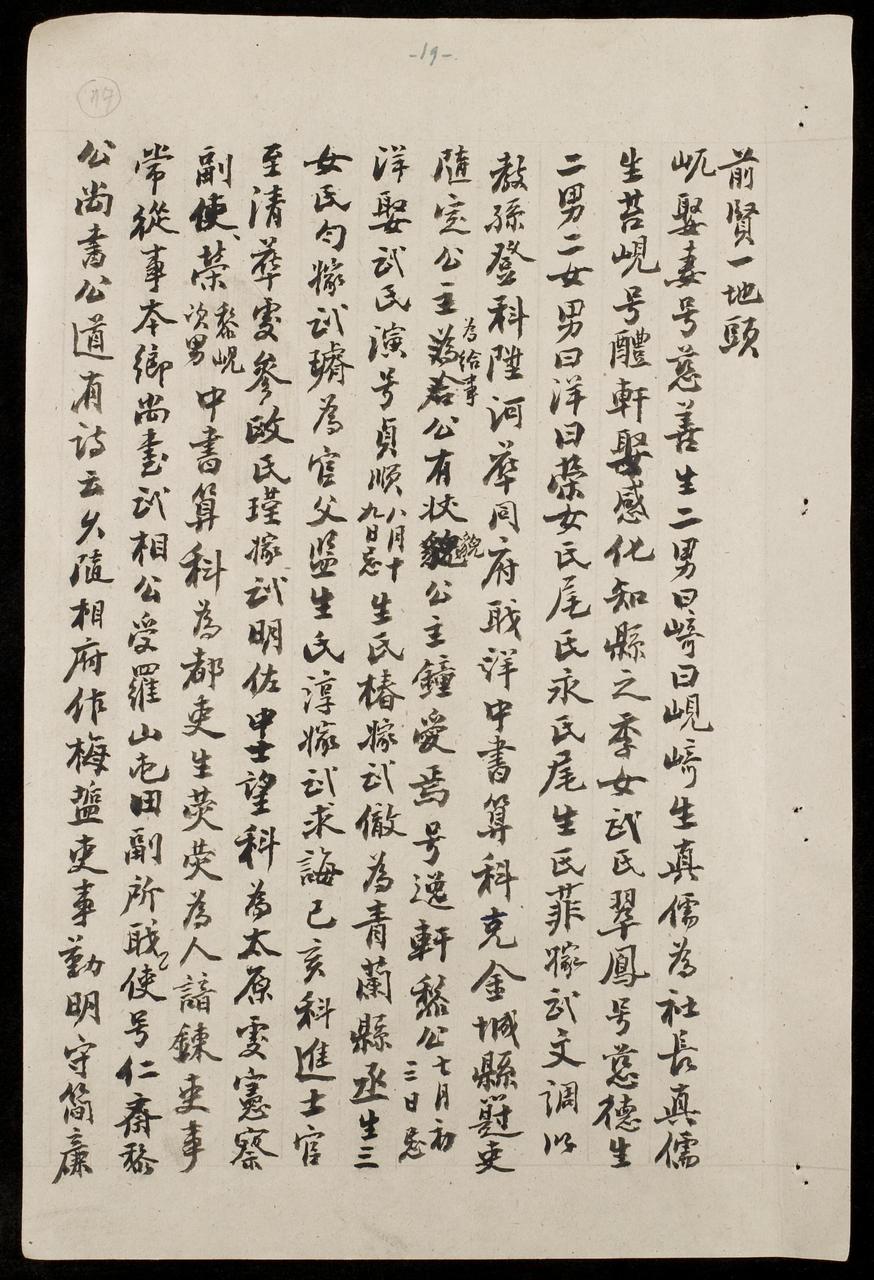 -19-
前賢一地頭
岏娶妻号慈善生二男曰崎曰峴崎生真儒為社長真儒
生苔峴号醴軒娶感化知縣之季女武氏翠鳳号慈德生
二男二女男曰洋曰榮女氏尾氏永氏尾生氏菲嫁武文調以
教孫登科陞河華同府職洋中書算科充金城縣題吏
隨定公主為給事公有狀貌公主鐘愛焉号逸軒黎公七月初三日忌
洋娶武氏演号貞順八月十九日忌生氏椿嫁武儆為青蘭縣丞生三
女氏勻嫁武璿為官父監生氏淳嫁武求誨己亥科進士官
至清華雯參政氏瑾嫁武明佐中士望科為太原雯憲察
副使榮黎峴次男中書算科為都吏生荧荧為人諳鍊吏事
常從事本鄉尚書武相公受羅山屯田副所職使号仁齋黎
公尚書公道有詩云久隨相府作梅塩吏事勤明守簡廉